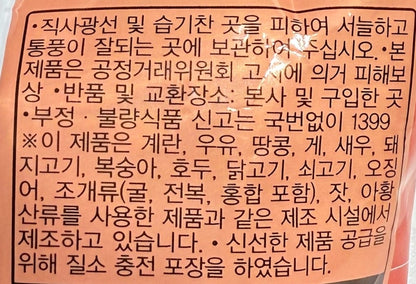 •직사광선 및 습기찬 곳을 피하여 서늘하고
통풍이 잘되는 곳에 보관하여 주십시오.•본
제품은 공정거래위원회 고시에 의거 피해보
상 •반품 및 교환장소: 본사 및 구입한 곳
•부정 · 불량식품 신고는 국번없이 1399
※이 제품은 계란, 우유, 땅콩, 게, 새우, 돼
지고기, 복숭아, 호두, 닭고기, 쇠고기, 오징
어, 조개류(굴, 전복, 홍합 포함), 잣, 아황
산류를 사용한 제품과 같은 제조 시설에서
제조하고 있습니다. • 신선한 제품 공급을
위해 질소 충전 포장을 하였습니다.